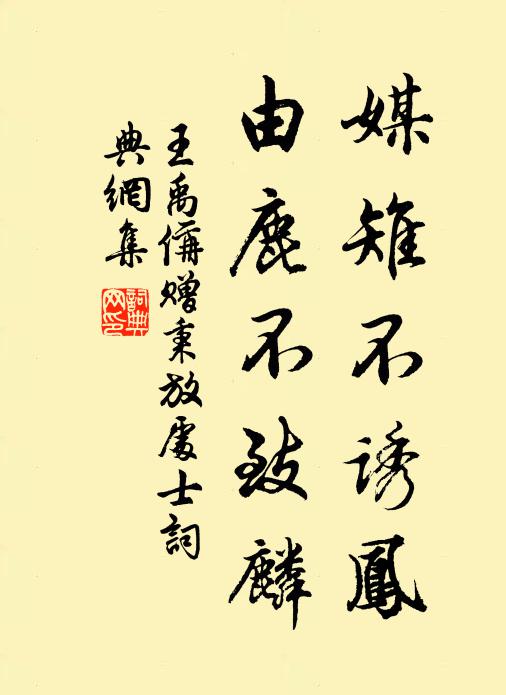 媒雉不誘鳳
由鹿不致麟
王禹偁贈秉放處士詞
典網集
詞典網印